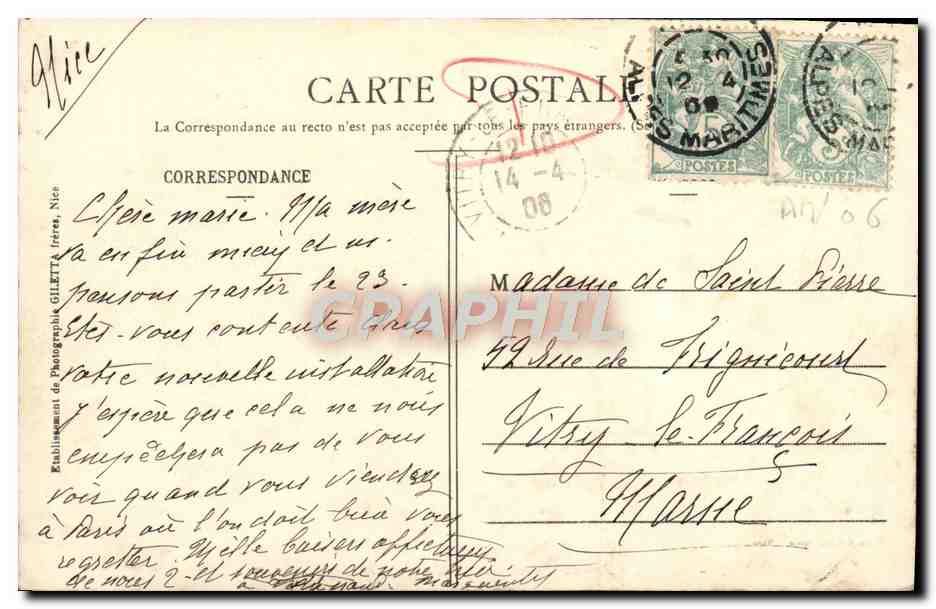 Nice
CARTE POSTALE
La Correspondance au recto n'est pas acceptée par tous les pays étrangers. (Se
CORRESPONDANCE
Etablissement de Photographie GILETTA frères, Nice
12 4
ALPES MARITIMES
5
POSTES
ALPES-MAR
5
POSTES
VITRY-LE
12 10
14 - 4
08
AM' 06
CPAPHIL
Chère marie. Ma mère
va enfin mieux et ns.
pensons partir le 23.
Etes-vous contente dans
votre nouvelle installation
J'espère que cela ne nous
empêchera pas de vous
voir quand vous viendrez
à Paris où l'on doit bien vous
regretter. Mille baisers affectueux
de nous 2 et souvenirs de notre
à Marguerite
Madame de Saint Pierre
52 rue de Frignicourt
Vitry-le-François
Marne